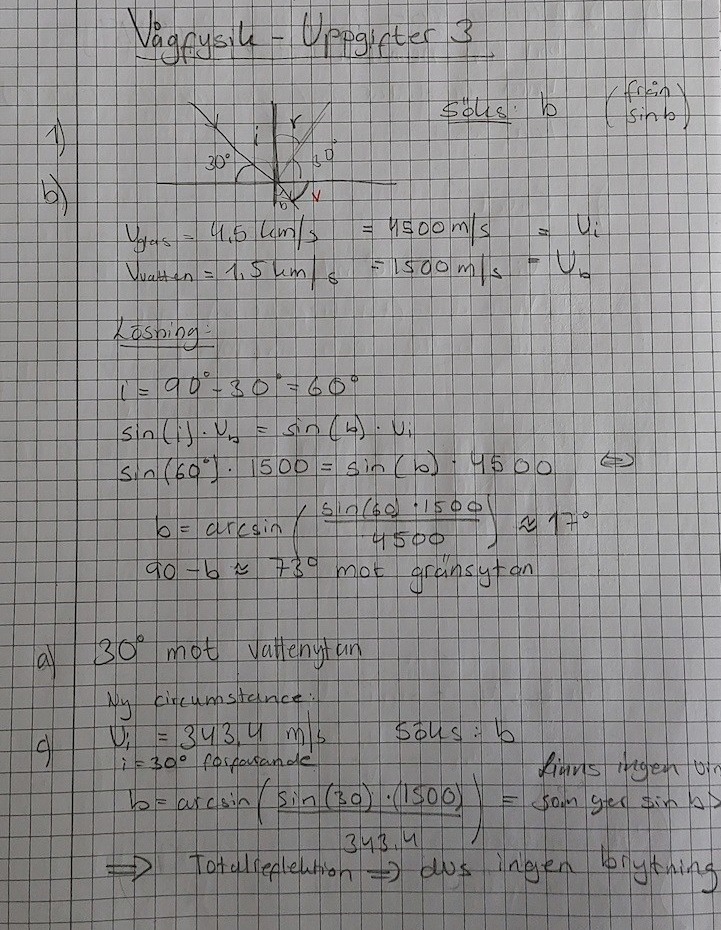 Vågfysik - Uppgifter 3
1)
söks: b (från sin b)
i r
30° 30°
b v
b)
Vglas = 4,5 km/s = 4500 m/s = Vi
Vvatten = 1,5 km/s = 1500 m/s = Vb
Lösning:
i = 90° - 30° = 60°
sin(i) · Vb = sin(b) · Vi
sin(60°) · 1500 = sin(b) · 4500 ⇔
b = arcsin (sin(60) · 1500 / 4500) ≈ 17°
90 - b ≈ 73° mot gränsytan
a) 30° mot vattenytan
Ny circumstance:
c) Vi = 343,4 m/s söks: b
i = 30° fortfarande
b = arcsin (sin(30) · (1500) / 343,4) = finns ingen vin
som ger sin b >
⇒ Totalreflektion ⇒ dvs ingen brytning